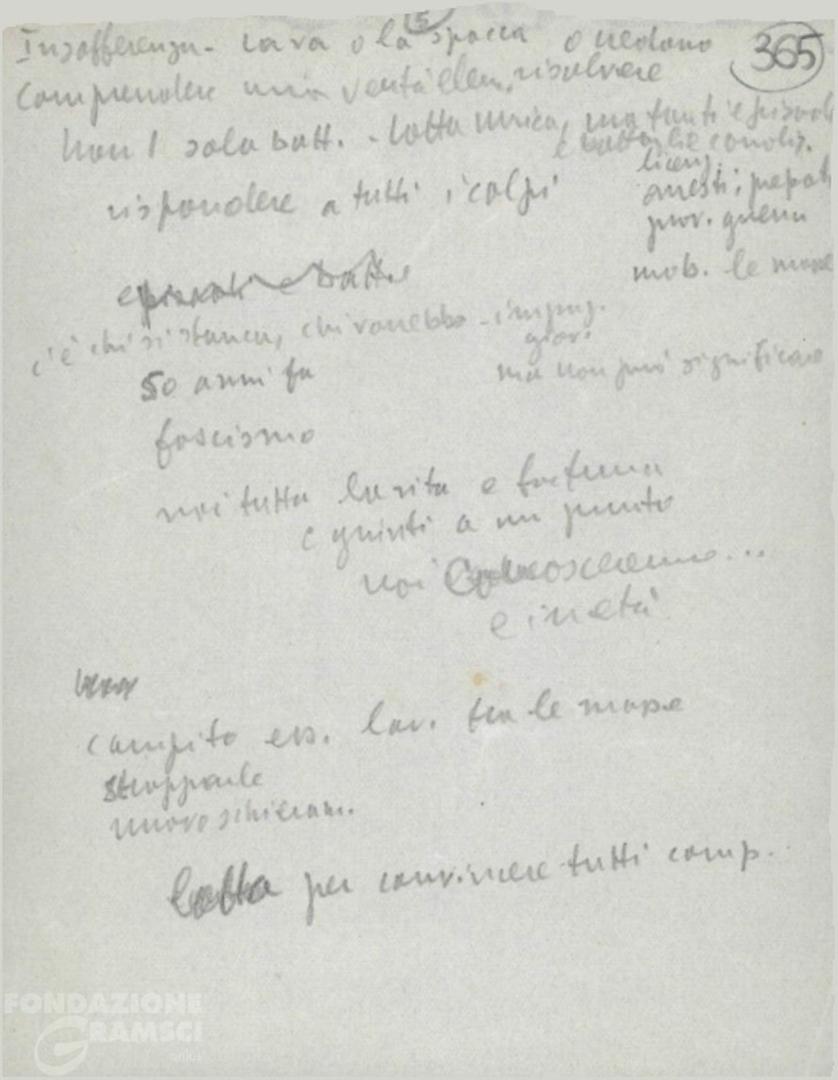 5
365
Insofferenza - la va o la spacca o vedono
Comprendere una verità elem. risolvere
Non 1 sola batt. - lotta unica, ma tanti episodi
e battaglie condiz.
licenz.
rispondere a tutti i colpi
arresti, prepat
prov. guerra
mob. le masse
episodi e batt.
c'è chi si stanca, chi vorrebbe - impaz.
giov.
50 anni fa
ma non può significare
fascismo
noi tutta la vita e fortuna
e giunti a un punto
noi conosceremo...
e in età
compito ess. lav. tra le masse
strapparle
nuovo schieram.
lotta per convincere tutti comp.
FONDAZIONE
GRAMSCI
onlus